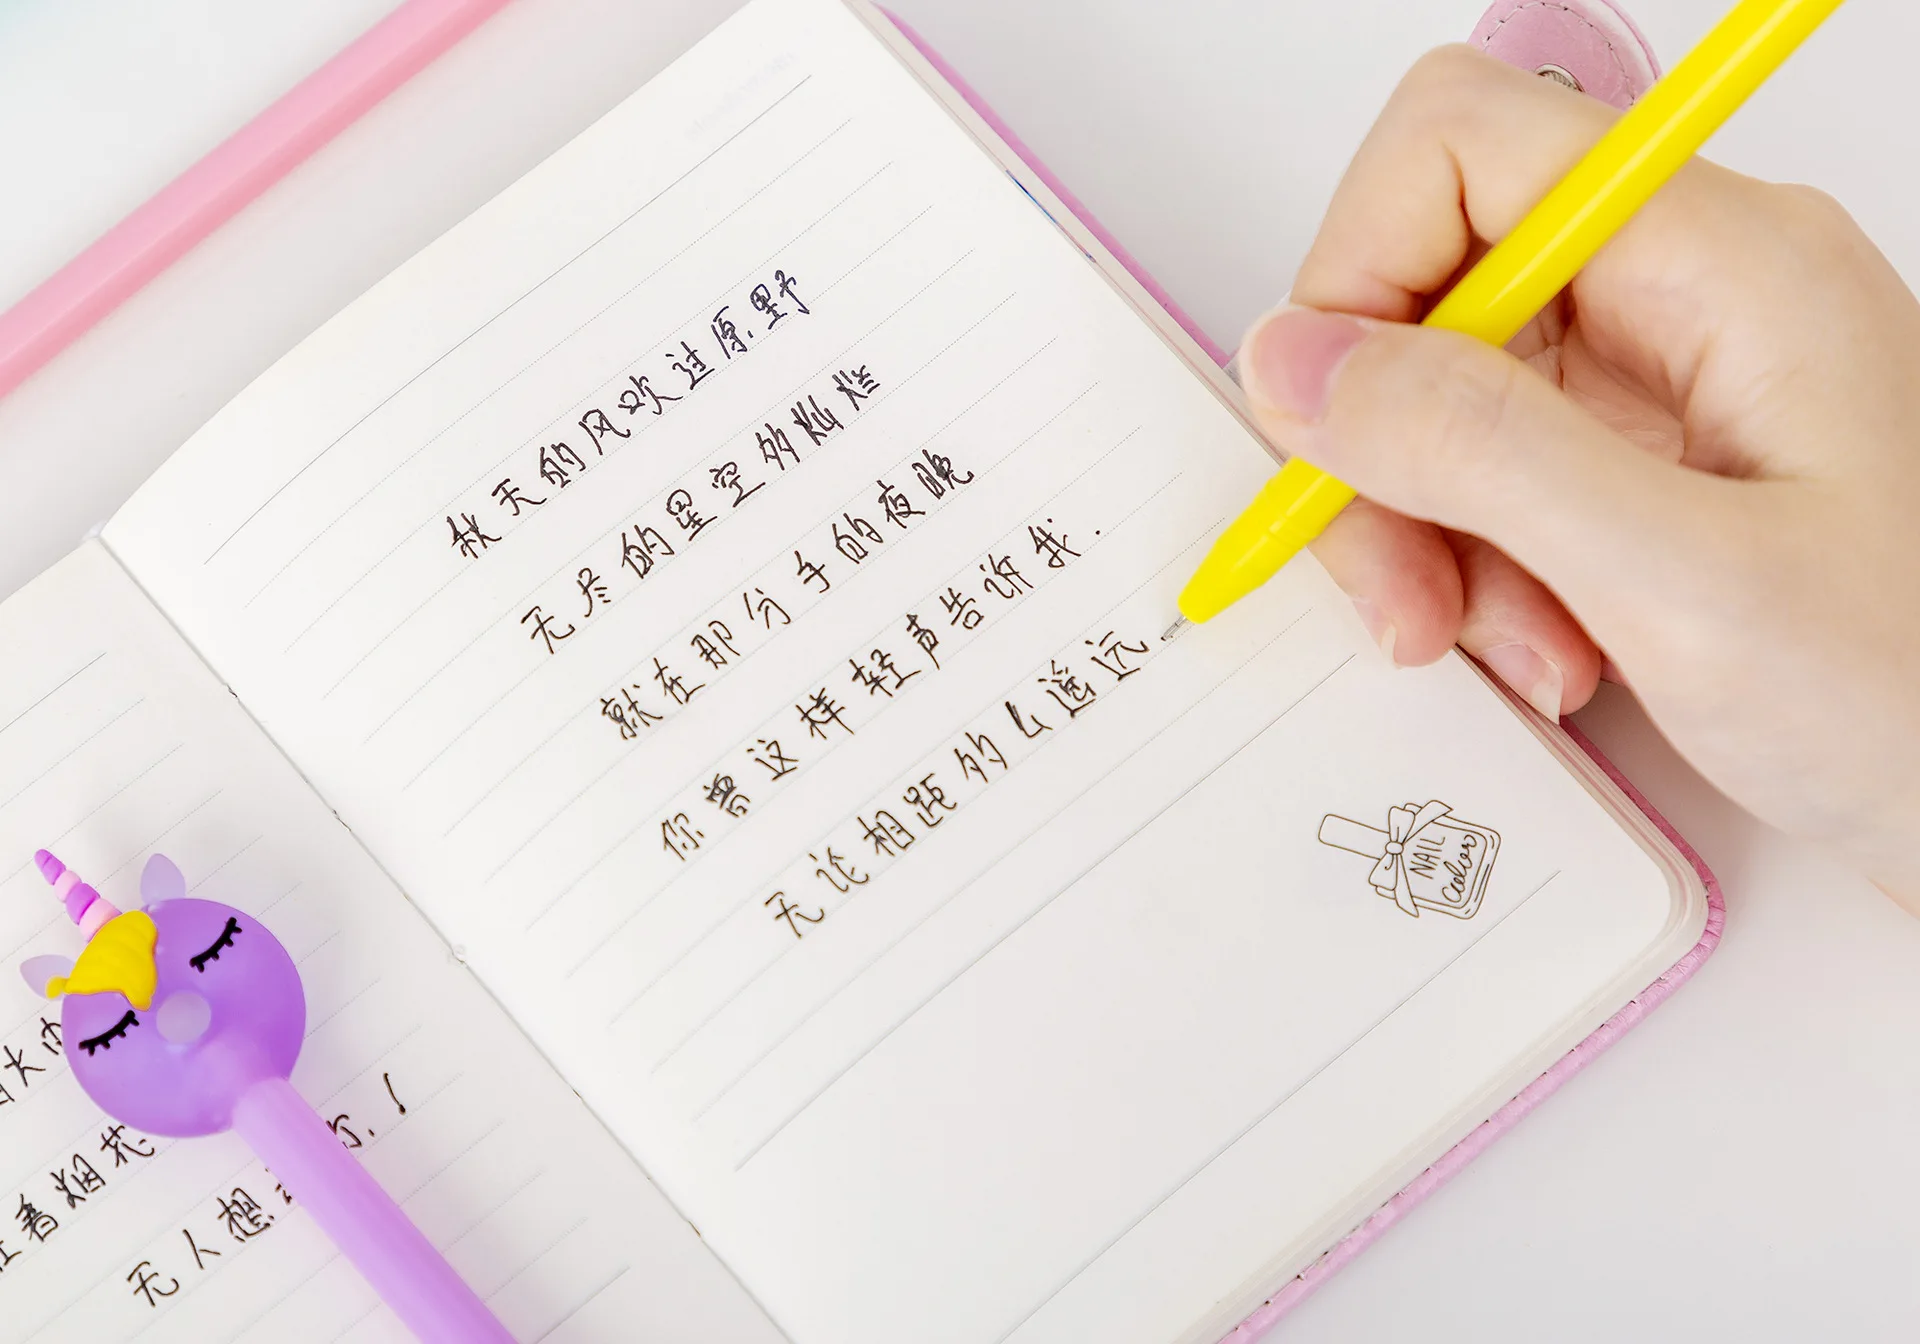 着烟花
无人想
秋天的风吹过原野
无尽的星空多灿烂
就在那分手的夜晚
你曾这样轻声告诉我.
无论相距的么遥远
NAIL
Color